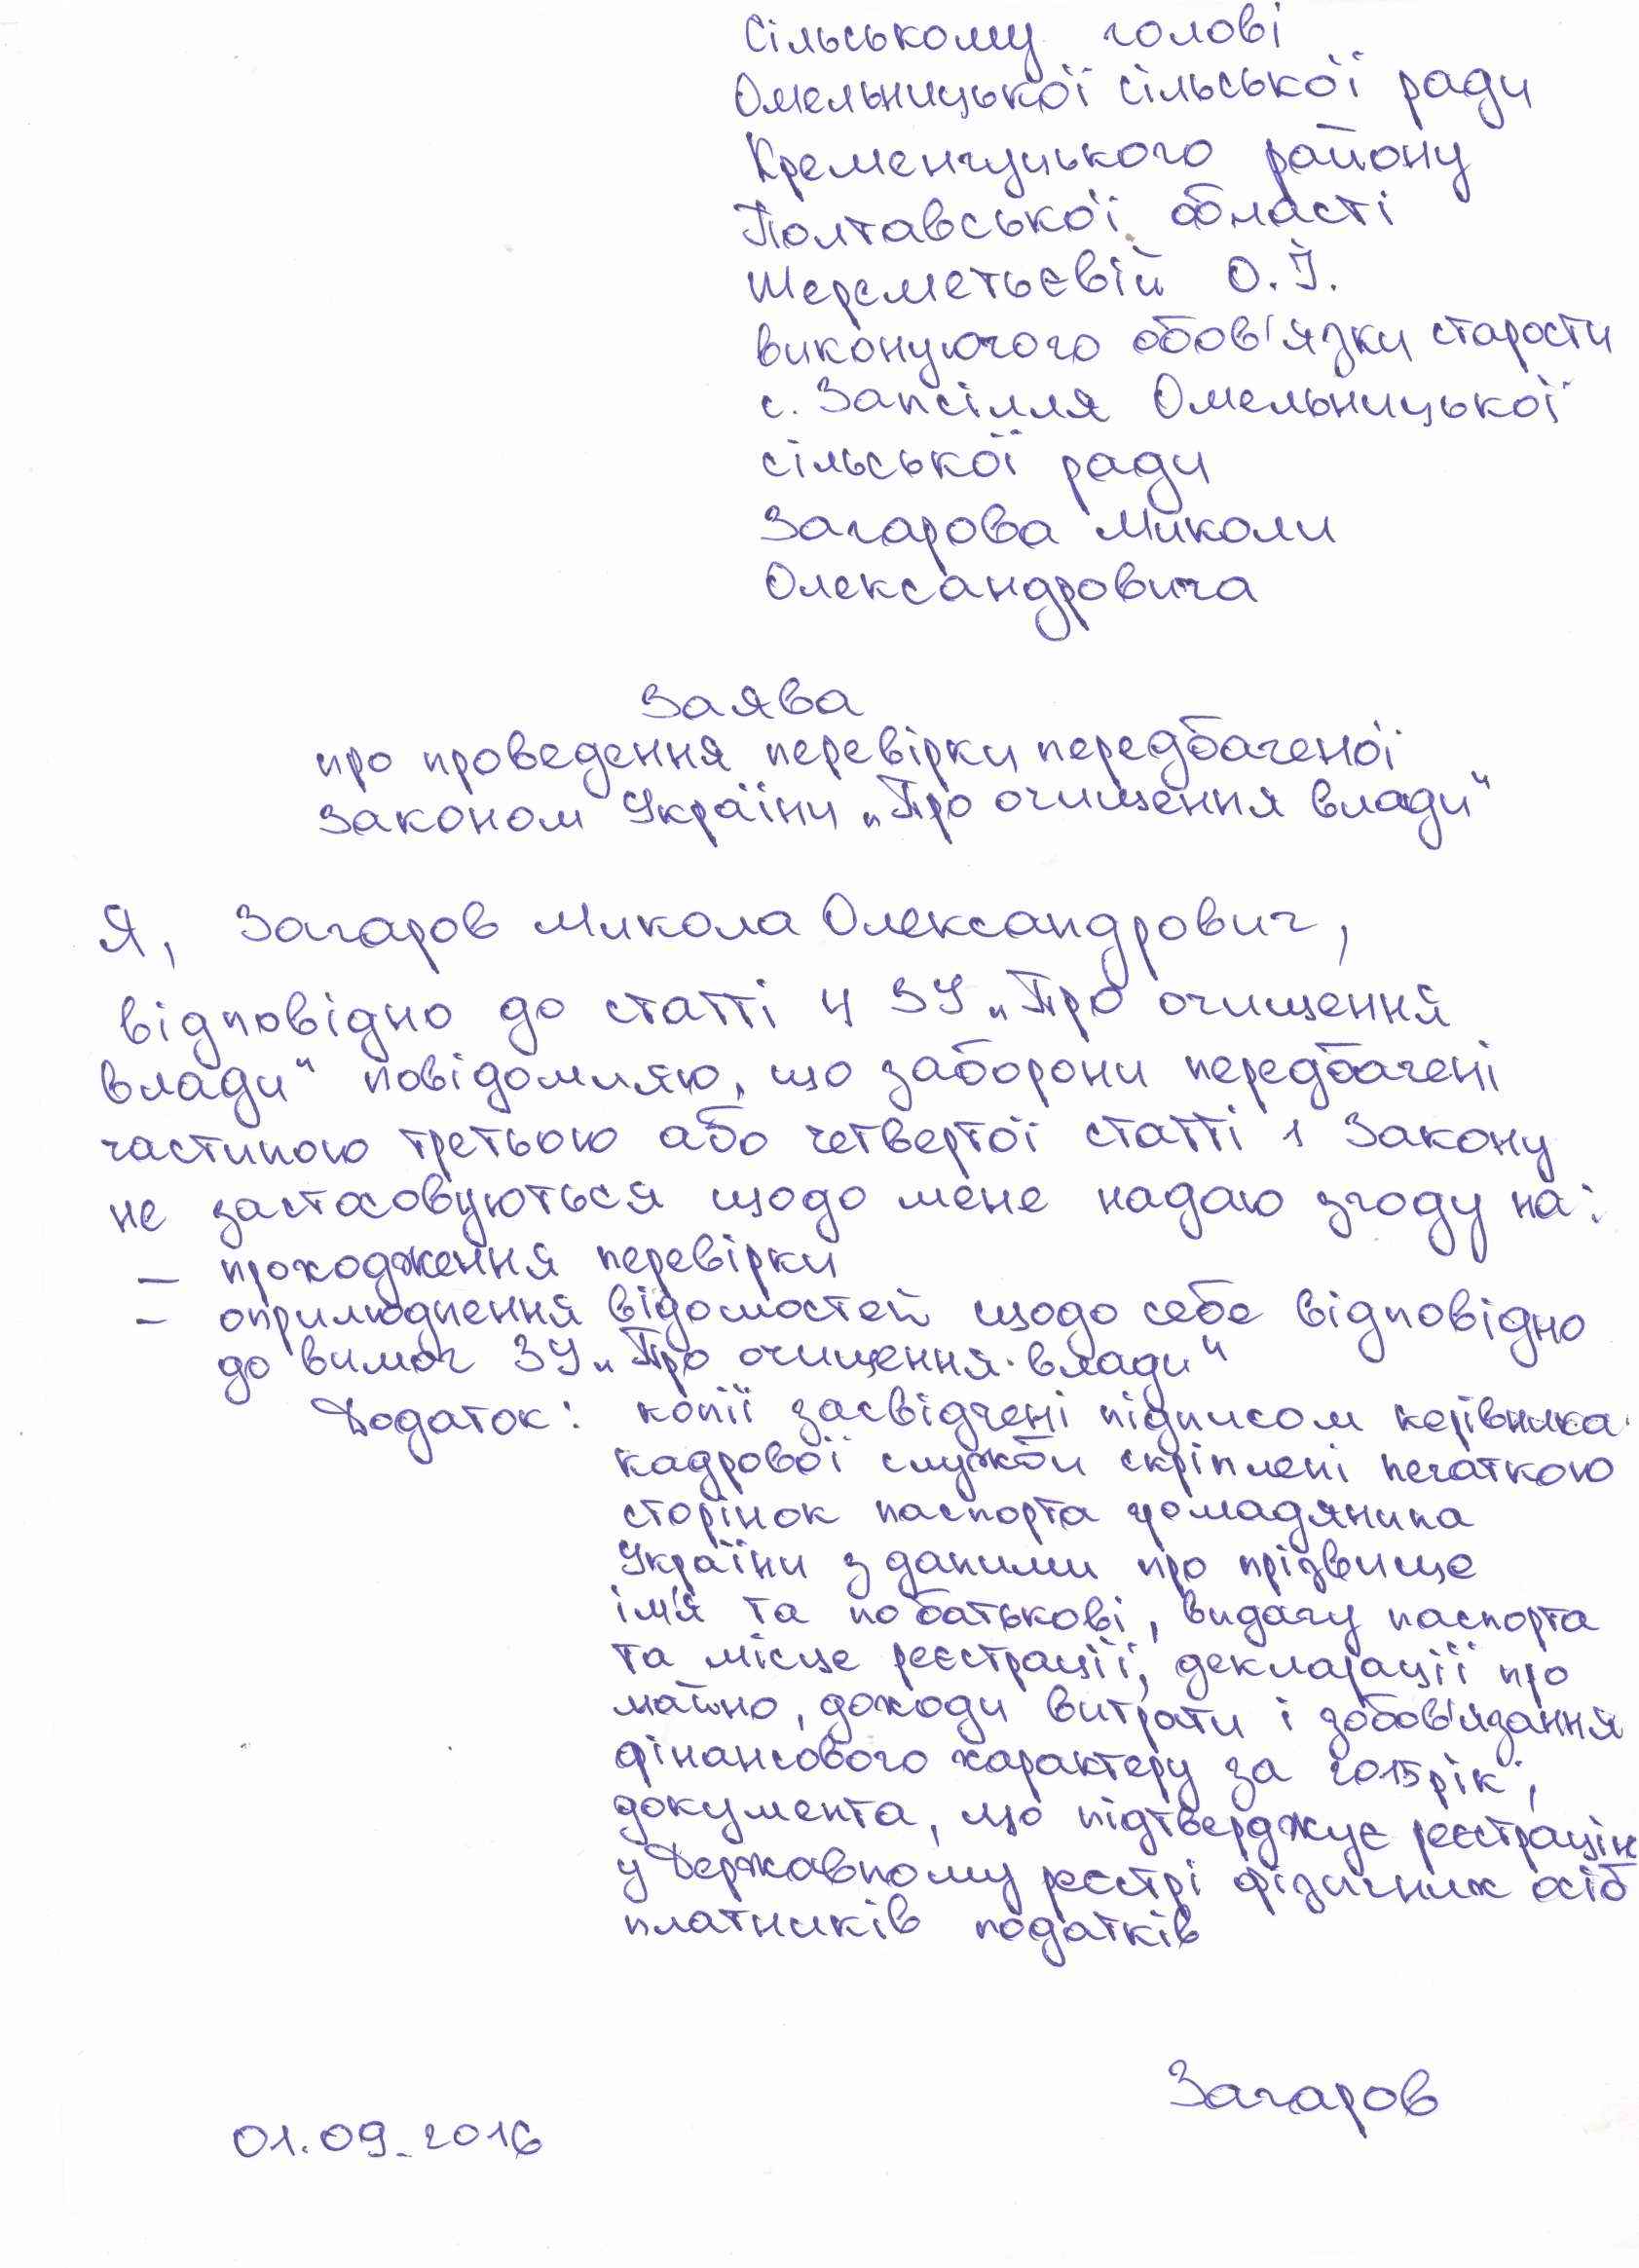 Сільському голові
Омельницької сільської ради
Кременчуцького району
Полтавської області
Шереметьєвій О.Й.
виконуючого обов'язки старости
с. Запсілля Омельницької
сільської ради
Загарова Миколи
Олександровича
Заява
про проведення перевірки передбаченої
законом України „Про очищення влади"
Я, Загаров Микола Олександрович,
відповідно до статті 4 ЗУ „Про очищення
влади" повідомляю, що заборони передбачені
частиною третьою або четвертої статті 1 Закону
не застосовуються щодо мене надаю згоду на:
— проходження перевірки
– оприлюднення відомостей щодо себе відповідно
до вимог ЗУ „Про очищення влади"
Додаток: копії засвідчені підписом керівника
кадрової служби скріплені печаткою
сторінок паспорта громадянина
України з даними про прізвище
ім'я та по батькові, видачу паспорта
та місце реєстрації, декларації про
майно, доходи витрати і зобов'язання
фінансового характеру за 2015 рік;
документа, що підтверджує реєстрацію
у Державному реєстрі фізичних осіб
платників податків
Загаров
01.09.2016